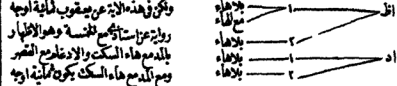 ولكن في هذه الآية عن يعقوب ثمانية أوجه
رواية عن أستاذي مع الخمسة وهو الإظهار
بالمد مع هاء السكت والإدغام مع القصر
ومع المد مع هاء السكت يكون ثمانية أوجه
بلاهاء ١ اظ
مع الهاء
بلاهاء ٢
بلاهاء ١ اد
بلاهاء ٢